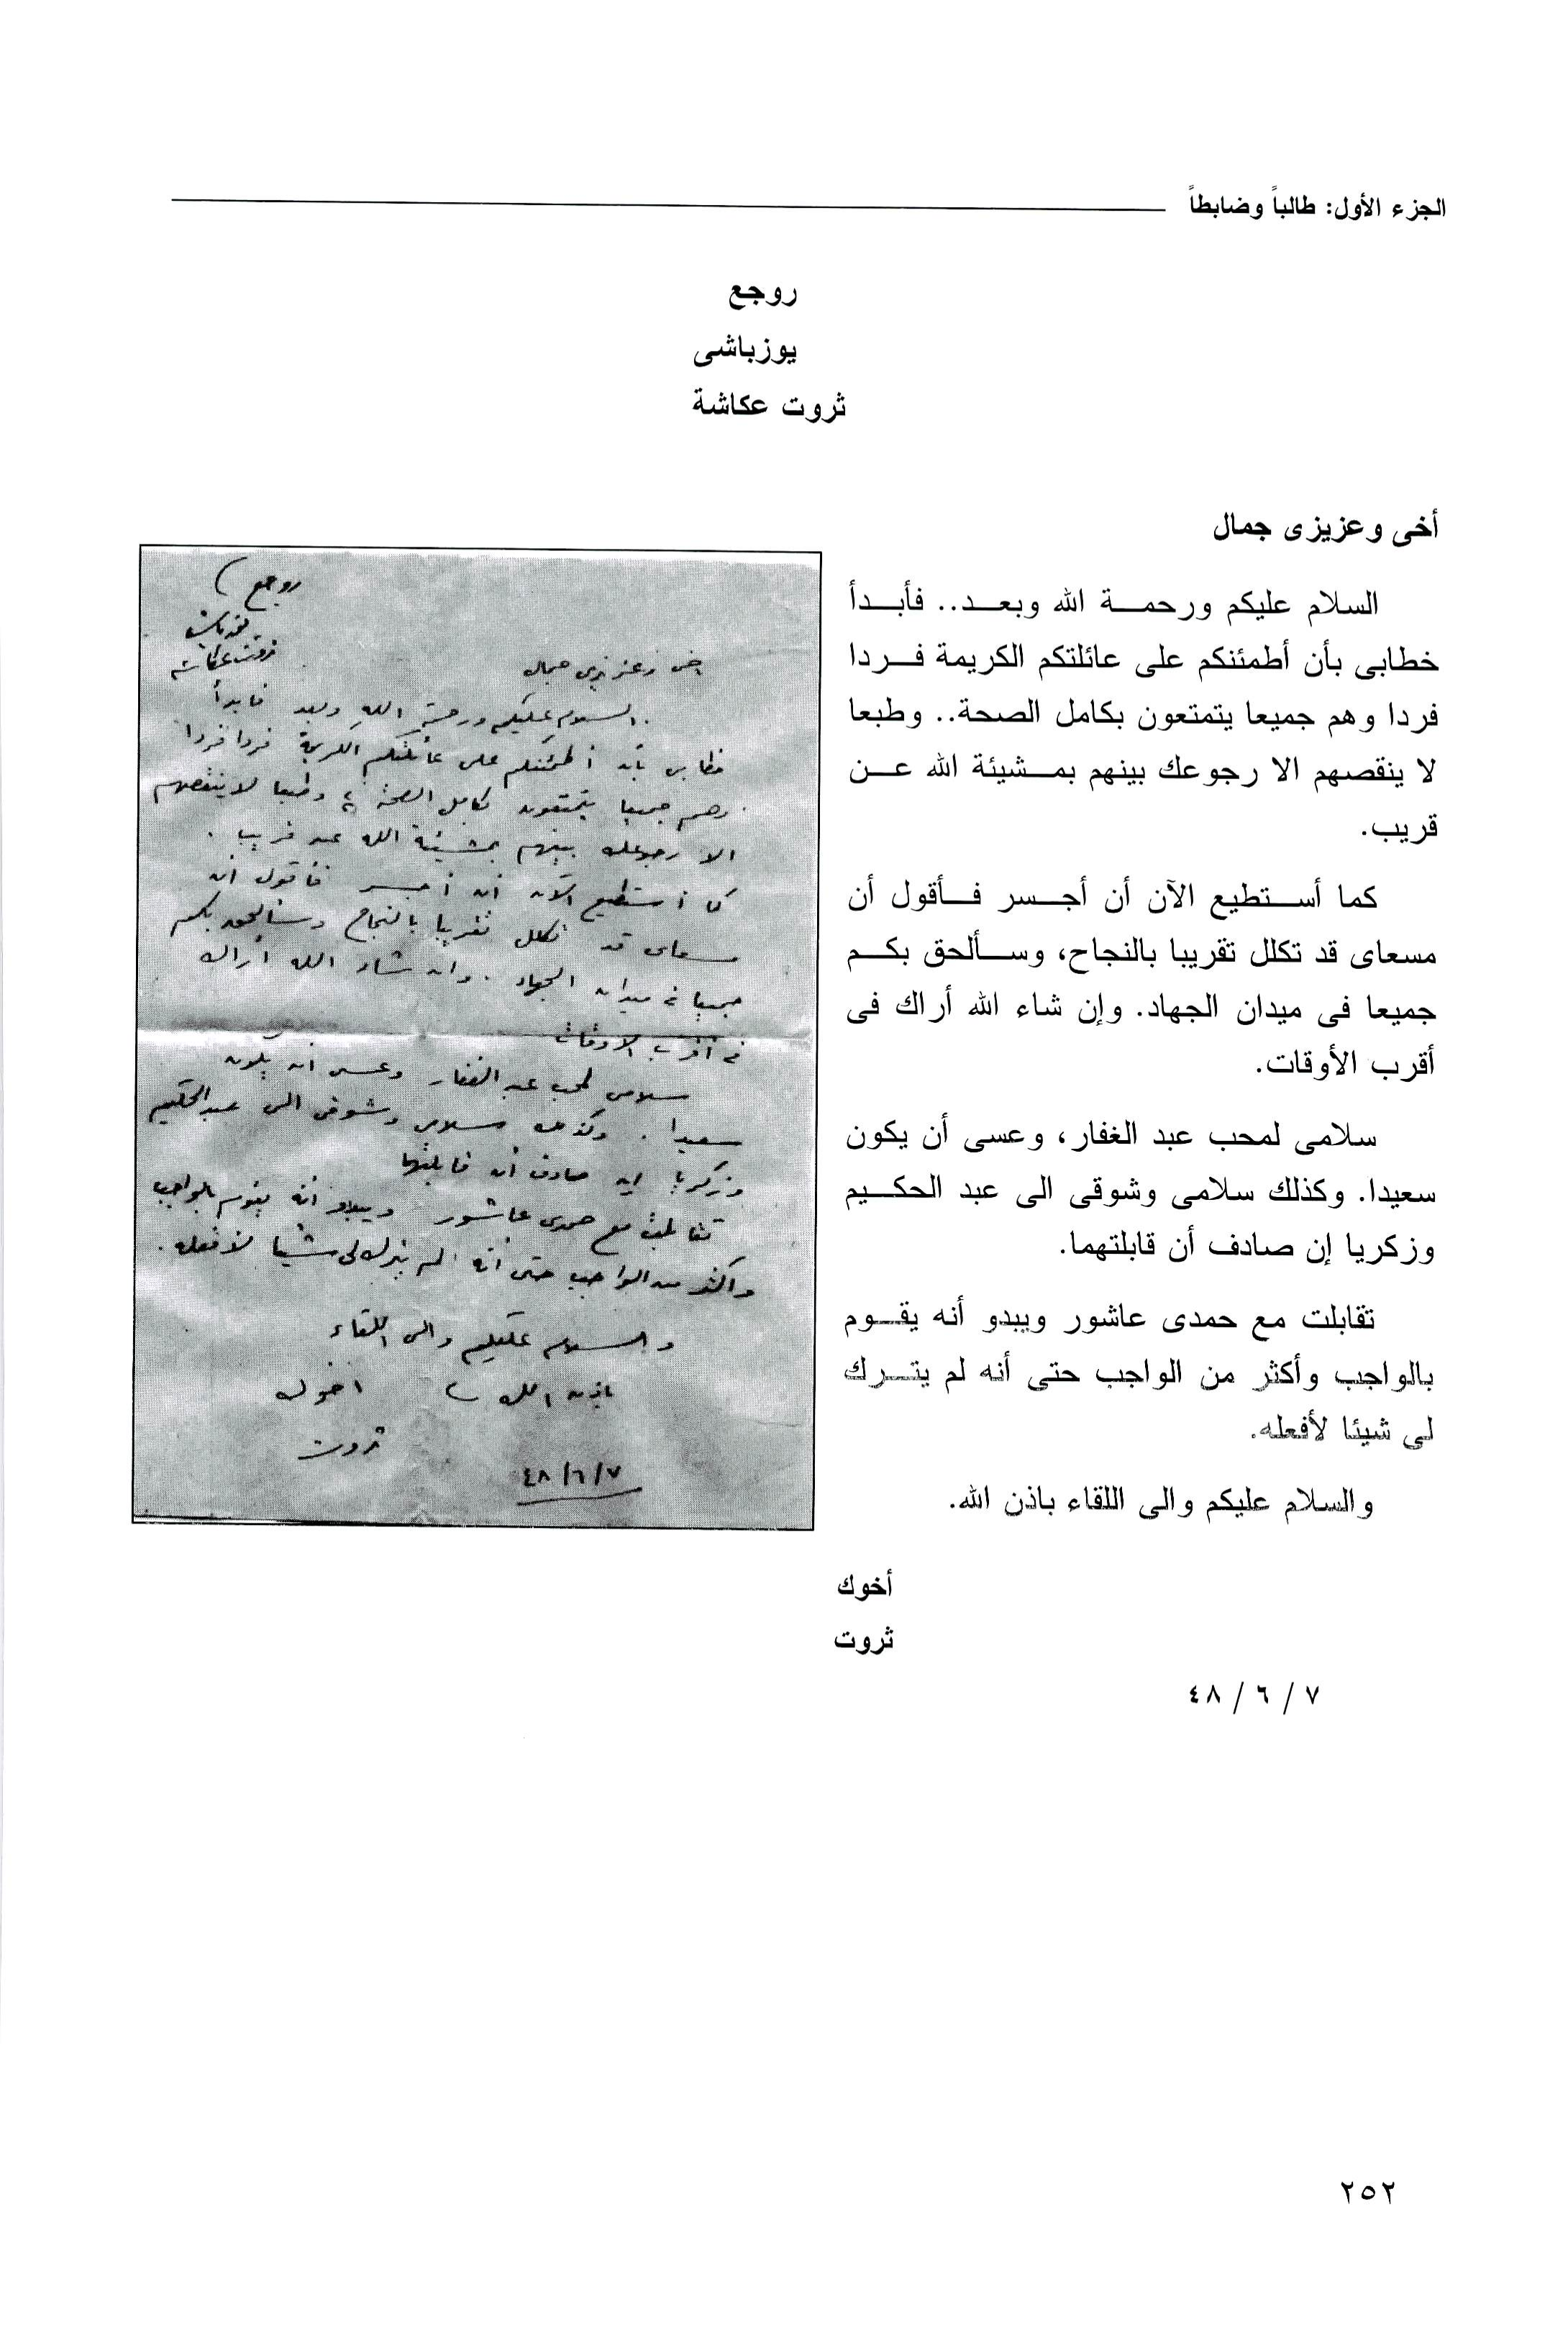 الجزء الأول: طالباً وضابطاً
روجع
يوزباشى
ثروت عكاشة
أخى وعزيزى جمال
السلام عليكم ورحمة الله وبعد.. فأبدأ
خطابى بأن أطمئنكم على عائلتكم الكريمة فردا
فردا وهم جميعا يتمتعون بكامل الصحة.. وطبعا
لا ينقصهم الا رجوعك بينهم بمشيئة الله عن
قريب.
كما أستطيع الآن أن أجسر فأقول أن
مسعاى قد تكلل تقريبا بالنجاح، وسألحق بكم
جميعا فى ميدان الجهاد. وإن شاء الله أراك فى
أقرب الأوقات.
سلامى لمحب عبد الغفار، وعسى أن يكون
سعيدا. وكذلك سلامى وشوقى الى عبد الحكيم
وزكريا إن صادف أن قابلتهما.
تقابلت مع حمدى عاشور ويبدو أنه يقوم
بالواجب وأكثر من الواجب حتى أنه لم يترك
لى شيئا لأفعله.
والسلام عليكم والى اللقاء باذن الله.
أخوك
ثروت
٧ / ٦ / ٤٨
روجع
يوزباشى
ثروت عكاشة
اخى وعزيزى جمال
السلام عليكم ورحمة الله وبعد فابدأ
خطابى بأن أطمئنكم على عائلتكم الكريمة فردا فردا
وهم جميعا يتمتعون بكامل الصحة ، وطبعا لا ينقصهم
الا رجوعك بينهم بمشيئة الله عن قريب .
كما أستطيع الآن أن أجسر فأقول أن
مسعاى قد تكلل تقريبا بالنجاح وسألحق بكم
جميعا فى ميدان الجهاد . وان شاء الله أراك
فى أقرب الاوقات
سلامى لمحب عبد الغفار وعسى أن يكون
سعيدا . وكذلك سلامى وشوقى الى عبد الحكيم
وزكريا إن صادف أن قابلتهما
تقابلت مع حمدى عاشور ويبدو أنه يقوم بالواجب
واكثر من الواجب حتى أنه لم يترك لى شيئا لأفعله .
والسلام عليكم والى اللقاء
باذن الله اخوك
ثروت
٤٨/٦/٧
٢٥٢